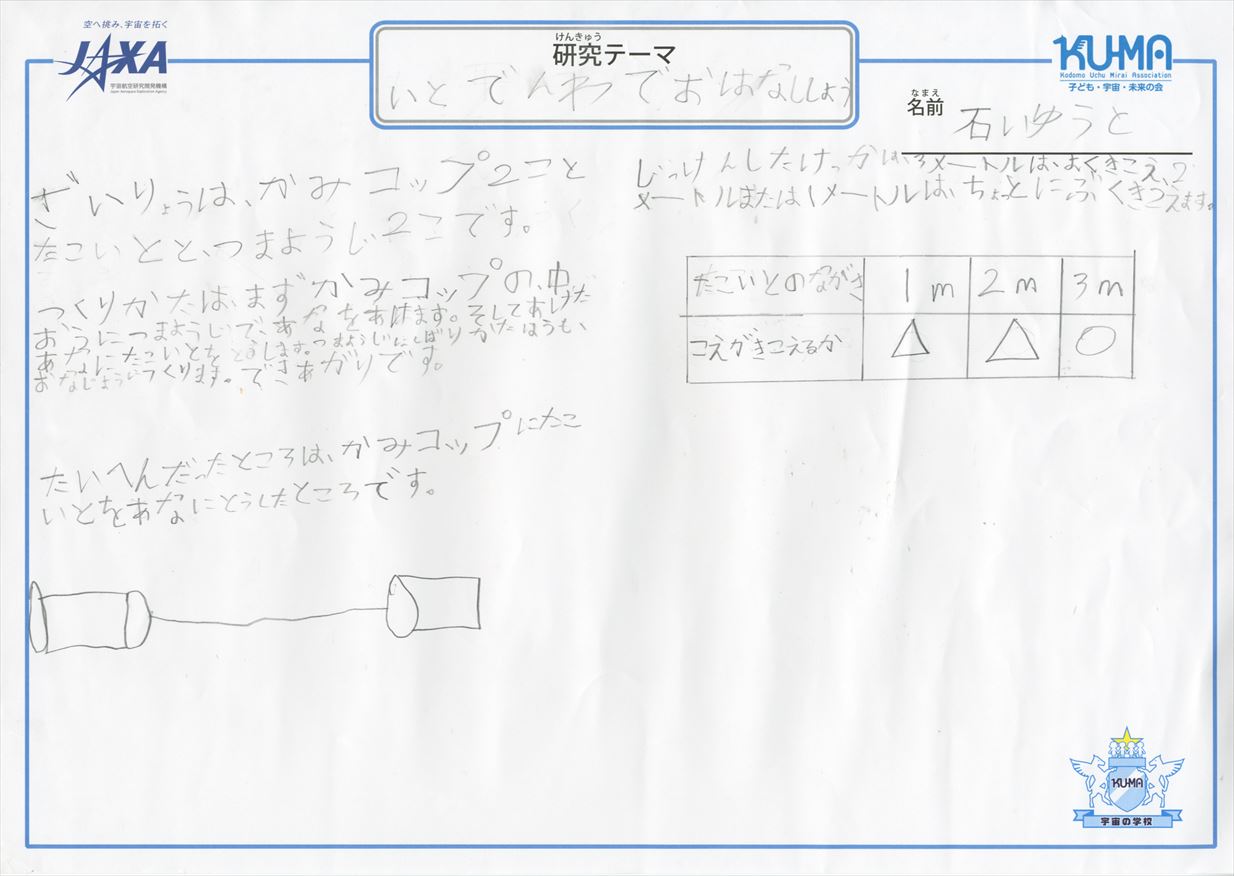 空へ挑み、宇宙を拓く
JAXA
宇宙航空研究開発機構
Japan Aerospace Exploration Agency
けんきゅう
研究テーマ
いとでんわでおはなししよう
KU-MA
Kodomo Uchu Mirai Association
子ども・宇宙・未来の会
なまえ
名前
石いゆうと
ざいりょうは、かみコップ2こと
たこいとと、つまようじ2こです。
つくりかたは、まずかみコップの、中
おうにつまようじで、あなをあけます。そしてあけた
あなにたこいとをとうします。つまようじにしばりかたほうも、
おなじようにつくります。できあがりです。
たいへんだったところは、かみコップにたこ
いとをあなにとうしたところです。
じっけんしたけっかは、3メートルは、よくきこえ、2
メートルまたは1メートルは、ちょっとにぶくきこえます。
たこいとのながさ 1m 2m 3m
こえがきこえるか △ △ ○
KU-MA
宇宙の学校